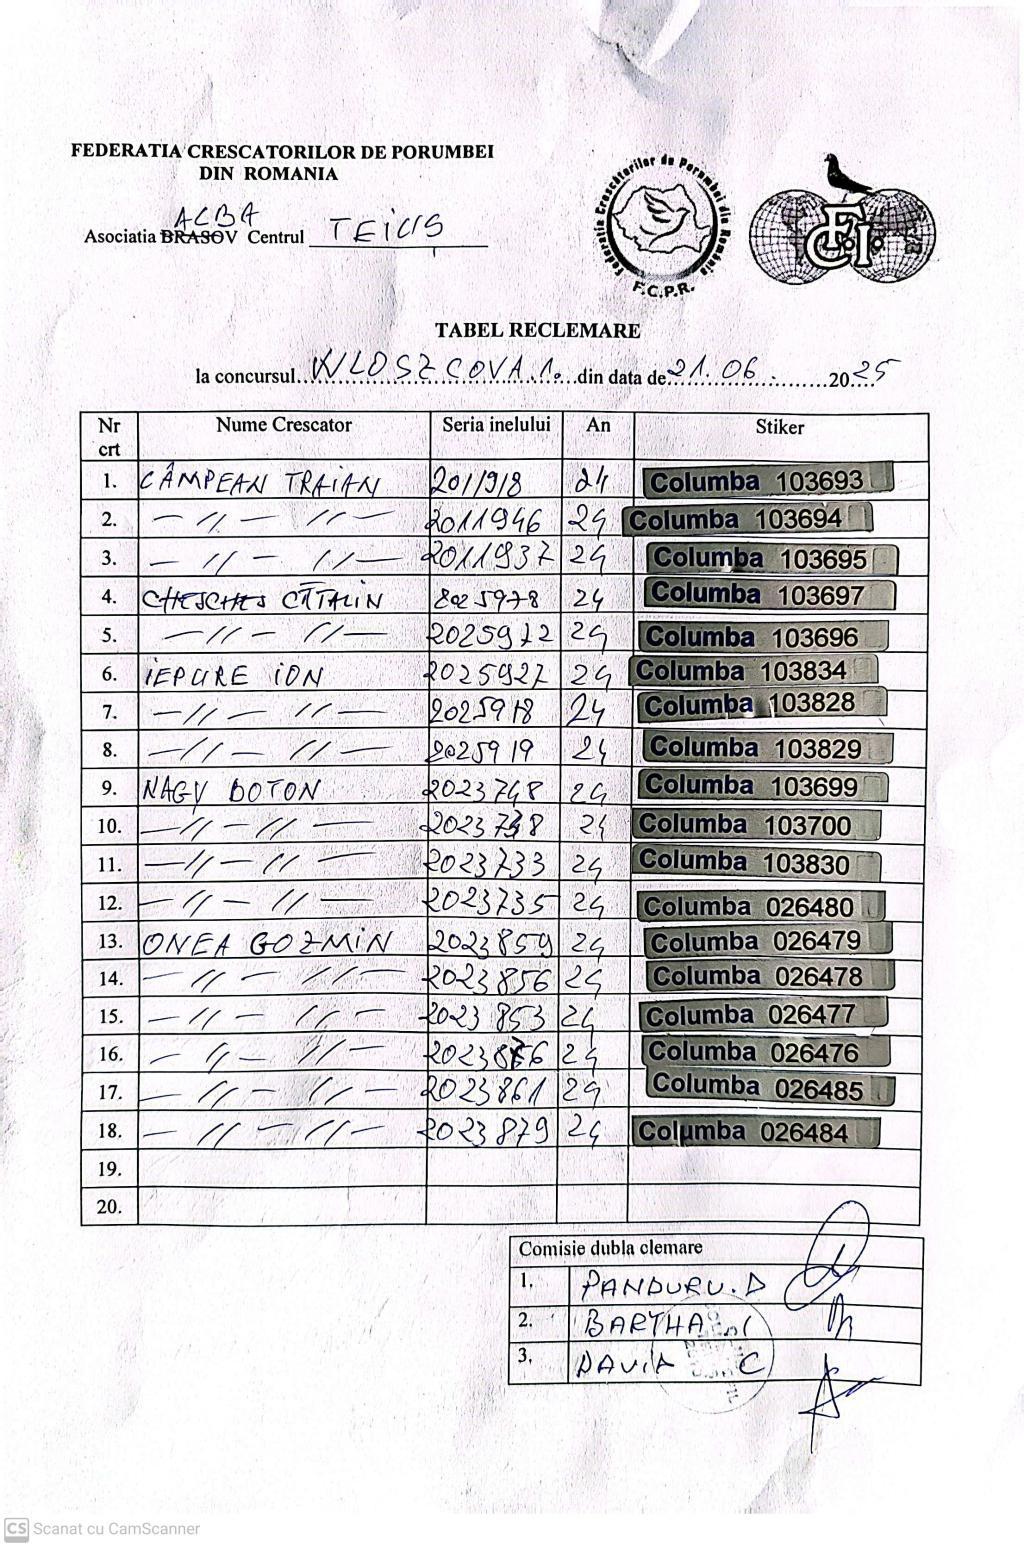 FEDERATIA CRESCATORILOR DE PORUMBEI
DIN ROMANIA
ALBA
Asociatia BRASOV Centrul TEIUS
Federatia Crescatorilor de Porumbei din Romania
F.C.P.R.
F.C.I.
TABEL RECLEMARE
la concursul WLOSZCOVA 1. din data de 21.06. 2025
Nr crt Nume Crescator Seria inelului An Stiker
1. CÂMPEAN TRAIAN 2011918 24 Columba 103693
2. — // — // — 2011946 24 Columba 103694
3. — // — // — 2011937 24 Columba 103695
4. CHESCHES CĂTALIN 2025978 24 Columba 103697
5. — // — // — 2025972 24 Columba 103696
6. IEPURE ION 2025927 24 Columba 103834
7. — // — // — 2025918 24 Columba 103828
8. — // — // — 2025919 24 Columba 103829
9. NAGY BOTON 2023748 24 Columba 103699
10. — // — // — 24 Columba 103700
11. — // — // — 2023733 24 Columba 103830
12. — // — // — 2023735 24 Columba 026480
13. ONEA GOZMIN 2023859 24 Columba 026479
14. — // — // — 2023856 24 Columba 026478
15. — // — // — 2023853 24 Columba 026477
16. — // — // — 24 Columba 026476
17. — // — // — 2023861 24 Columba 026485
18. — // — // — 2023879 24 Columba 026484
19.
20.
Comisie dubla clemare
1. PANDURU. D
2. BARTHA I
3. DAVID C
CS Scanat cu CamScanner